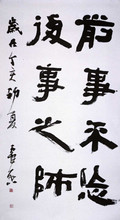 前事不忘
後事之師
歲在亥初夏